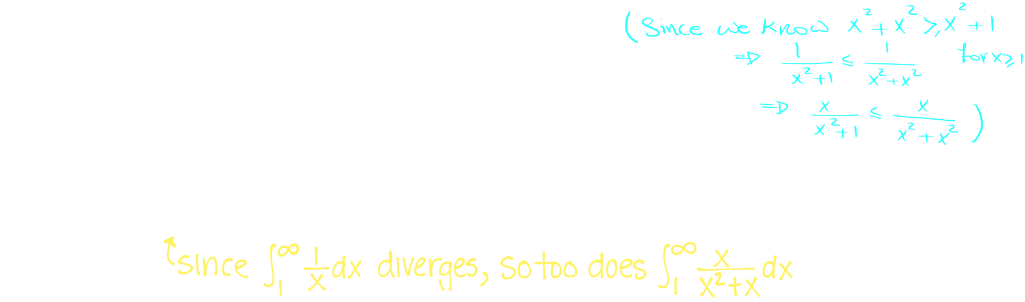 (Since we know x² + x² ⩾ x² + 1
⇒ 1/(x²+1) ≤ 1/(x²+x²) for x ⩾ 1
⇒ x/(x²+1) ≤ x/(x²+x²) )
Since ∫₁^∞ 1/x dx diverges, so too does ∫₁^∞ x/(x²+x) dx